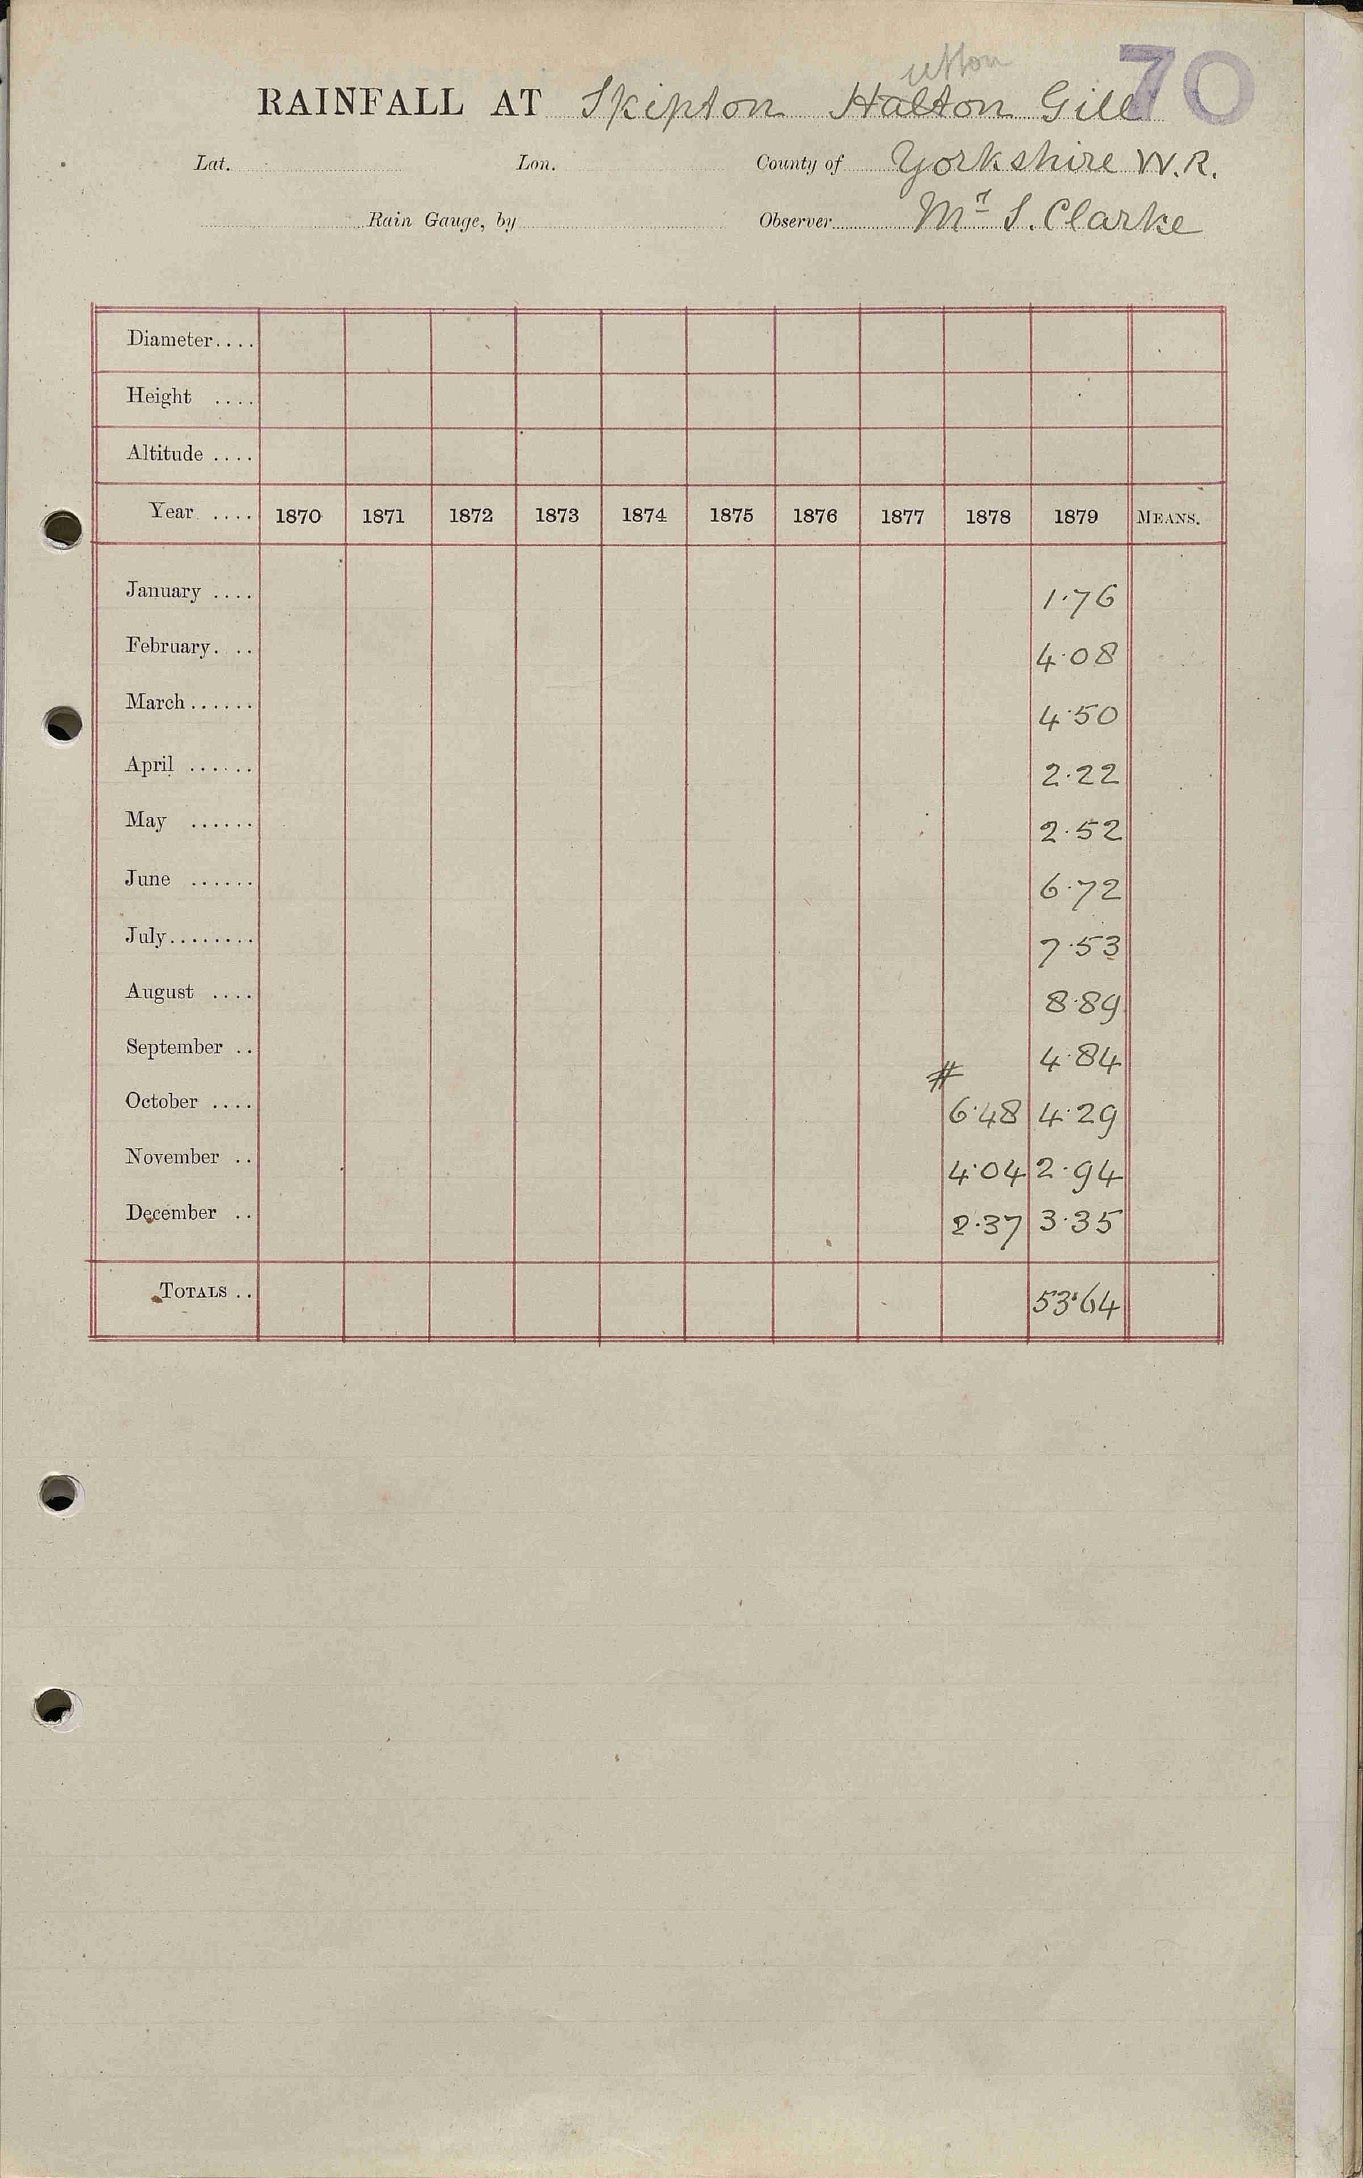 70
RAINFALL AT Skipton Halton Gill
Lat. Lon. County of Yorkshire W.R.
Rain Gauge, by Observer Mr S. Clarke
Diameter....
Height ....
Altitude ....
Year .... 1870 1871 1872 1873 1874 1875 1876 1877 1878 1879 MEANS.
January .... 1.76
February. .. 4.08
March ...... 4.50
April ...... 2.22
May ...... 2.52
June ...... 6.72
July........ 7.53
August .... 8.89
September .. 4.84
#
October .... 6.48 4.29
November .. 4.04 2.94
December .. 2.37 3.35
TOTALS .. 53.64